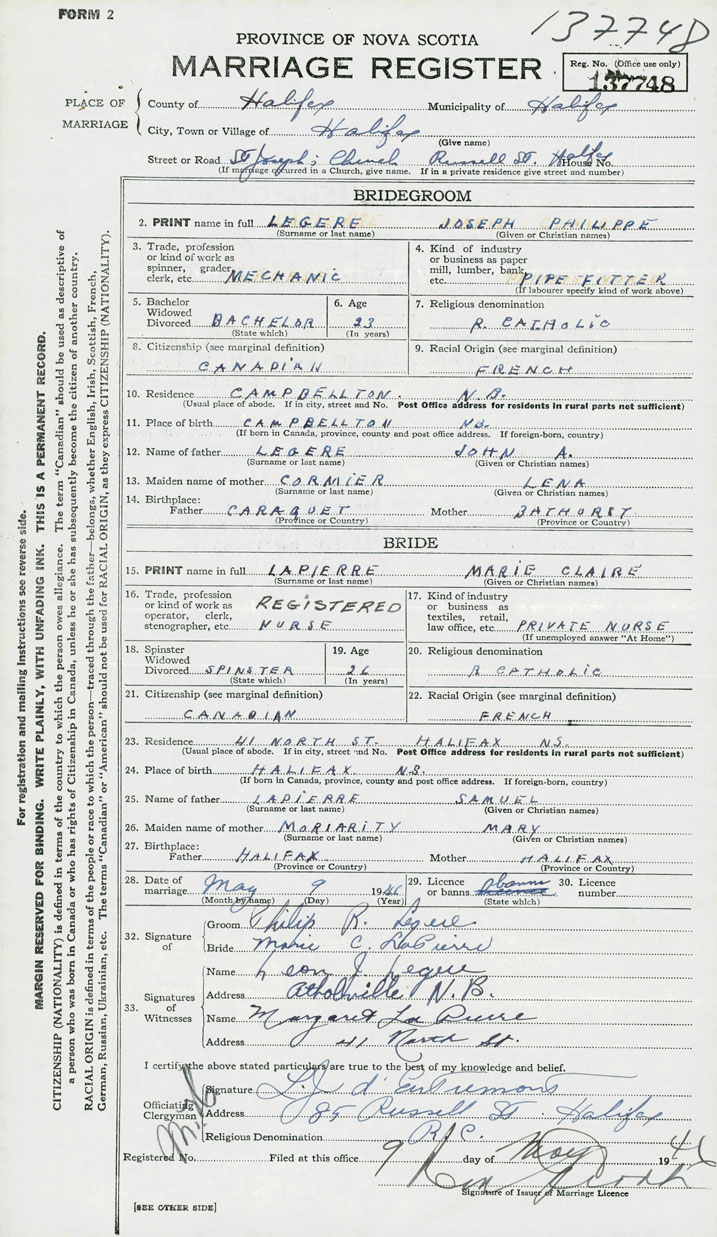 FORM 2
137748
PROVINCE OF NOVA SCOTIA
MARRIAGE REGISTER
Reg. No. (Office use only)
137748
PLACE OF MARRIAGE
County of Halifax Municipality of Halifax
City, Town or Village of Halifax
(Give name)
Street or Road St Joseph's Church Russell St. Halifax House No.
(If marriage occurred in a Church, give name. If in a private residence give street and number)
BRIDEGROOM
2. PRINT name in full LEGERE JOSEPH PHILIPPE
(Surname or last name) (Given or Christian names)
3. Trade, profession or kind of work as spinner, grader, clerk, etc. MECHANIC
4. Kind of industry or business as paper mill, lumber, bank, etc. PIPE FITTER
(If labourer specify kind of work above)
5. Bachelor Widowed Divorced BACHELOR
(State which)
6. Age 23
(In years)
7. Religious denomination
R. CATHOLIC
8. Citizenship (see marginal definition)
CANADIAN
9. Racial Origin (see marginal definition)
FRENCH
10. Residence CAMPBELLTON. N.B.
(Usual place of abode. If in city, street and No. Post Office address for residents in rural parts not sufficient)
11. Place of birth CAMPBELLTON NB.
(If born in Canada, province, county and post office address. If foreign-born, country)
12. Name of father LEGERE JOHN A.
(Surname or last name) (Given or Christian names)
13. Maiden name of mother CORMIER LENA
(Surname or last name) (Given or Christian names)
14. Birthplace:
Father CARAQUET Mother BATHURST
(Province or Country) (Province or Country)
BRIDE
15. PRINT name in full LAPIERRE MARIE CLAIRE
(Surname or last name) (Given or Christian names)
16. Trade, profession or kind of work as operator, clerk, stenographer, etc. REGISTERED NURSE
17. Kind of industry or business as textiles, retail, law office, etc. PRIVATE NURSE
(If unemployed answer "At Home")
18. Spinster Widowed Divorced SPINSTER
(State which)
19. Age 26
(In years)
20. Religious denomination
R CATHOLIC
21. Citizenship (see marginal definition)
CANADIAN
22. Racial Origin (see marginal definition)
FRENCH
23. Residence 41 NORTH ST. HALIFAX NS.
(Usual place of abode. If in city, street and No. Post Office address for residents in rural parts not sufficient)
24. Place of birth HALIFAX NS.
(If born in Canada, province, county and post office address. If foreign-born, country)
25. Name of father LAPIERRE SAMUEL
(Surname or last name) (Given or Christian names)
26. Maiden name of mother MORIARITY MARY
(Surname or last name) (Given or Christian names)
27. Birthplace:
Father HALIFAX Mother HALIFAX
(Province or Country) (Province or Country)
28. Date of marriage May 9 1946
(Month by name) (Day) (Year)
29. Licence or banns banns
(State which)
30. Licence number
32. Signature of
Groom Philip R. Legere
Bride Marie C. LaPierre
33. Signatures of Witnesses
Name Leon J. Legere
Address Atholville N.B.
Name Margaret LaPierre
Address 41 North St.
I certify the above stated particulars are true to the best of my knowledge and belief.
Officiating Clergyman
Signature L.J. d'Entremont
Address 85 Russell St. Halifax
Religious Denomination R.C.
Registered No. Filed at this office 9 day of May 1946
Signature of Issuer of Marriage Licence
[SEE OTHER SIDE]
For registration and mailing instructions see reverse side.
MARGIN RESERVED FOR BINDING. WRITE PLAINLY, WITH UNFADING INK. THIS IS A PERMANENT RECORD.
CITIZENSHIP (NATIONALITY) is defined in terms of the country to which the person owes allegiance. The term "Canadian" should be used as descriptive of
a person who was born in Canada or who has rights of Citizenship in Canada, unless he or she has subsequently become the citizen of another country.
RACIAL ORIGIN is defined in terms of the people or race to which the person—traced through the father—belongs, whether English, Irish, Scottish, French,
German, Russian, Ukrainian, etc. The terms "Canadian" or "American" should not be used for RACIAL ORIGIN, as they express CITIZENSHIP (NATIONALITY).